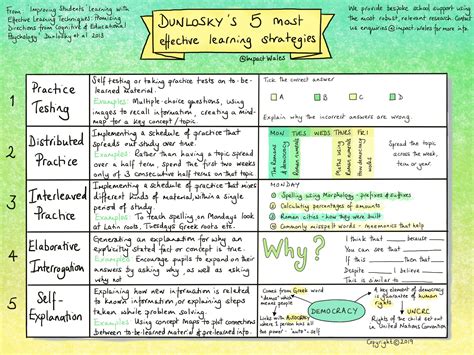 From Improving Students' Learning with
Effective Learning Techniques: Promising
Directions from Cognitive & Educational
Psychology' Dunlosky et al 2013
DUNLOSKY'S 5 most
effective learning strategies
@ImpactWales
We provide bespoke school support using
the most robust, relevant research. Contact
us enquiries@impactwales for more info.
1
Practice
Testing
Self testing or taking practice tests on to-be-
learned material.
Examples: Multiple-choice questions, using
images to recall information, creating a mind-
map for a key concept/topic.
Tick the correct answer
A B C D
Explain why the incorrect answers are wrong.
2
Distributed
Practice
Implementing a schedule of practice that
spreads out study over time.
Examples: Rather than having a topic spread
over a half term, spend the first two weeks
only of 3 consecutive half terms on that topic
MON TUES WEDS THURS FRI
The Romans
& democracy
Roman
events
Maths using
Roman
numerals
How democracy
works
Spread the topic
across the week,
term or year.
3
Interleaved
Practice
Implementing a schedule of practice that mixes
different kinds of material, within a single
study session.
Examples: To teach spelling on Mondays look
at Latin roots, Tuesdays Greek roots etc.
MONDAY
Spelling using Morphology - prefixes & suffixes
Calculating percentages of amounts
Roman cities - how they were built
Commonly misspelt words - mnemonics that help
4
Elaborative
Interrogation
Generating an explanation for why an
explicitly stated fact or concept is true.
Examples: Encourage pupils to expand on their
answers by asking why, as well as asking
why not
Why?
I think that because
You can see that when
If this then
Despite I believe
This is similar to
5
Self-
Explanation
Explaining how new information is related
to known information, or explaining steps
taken whole problem solving.
Examples: Using concept maps to plot connections
between to-be-learned material & prior material.
Comes from Greek word
"demos" which means
'people'
DEMOCRACY
A key element of democracy
is guarantee of human
rights
Links with AUTOCRACY
where 1 person has all
the power - "auto"-self
UNCRC
Rights of the child set out in
United Nations Convention
Copyright©2019